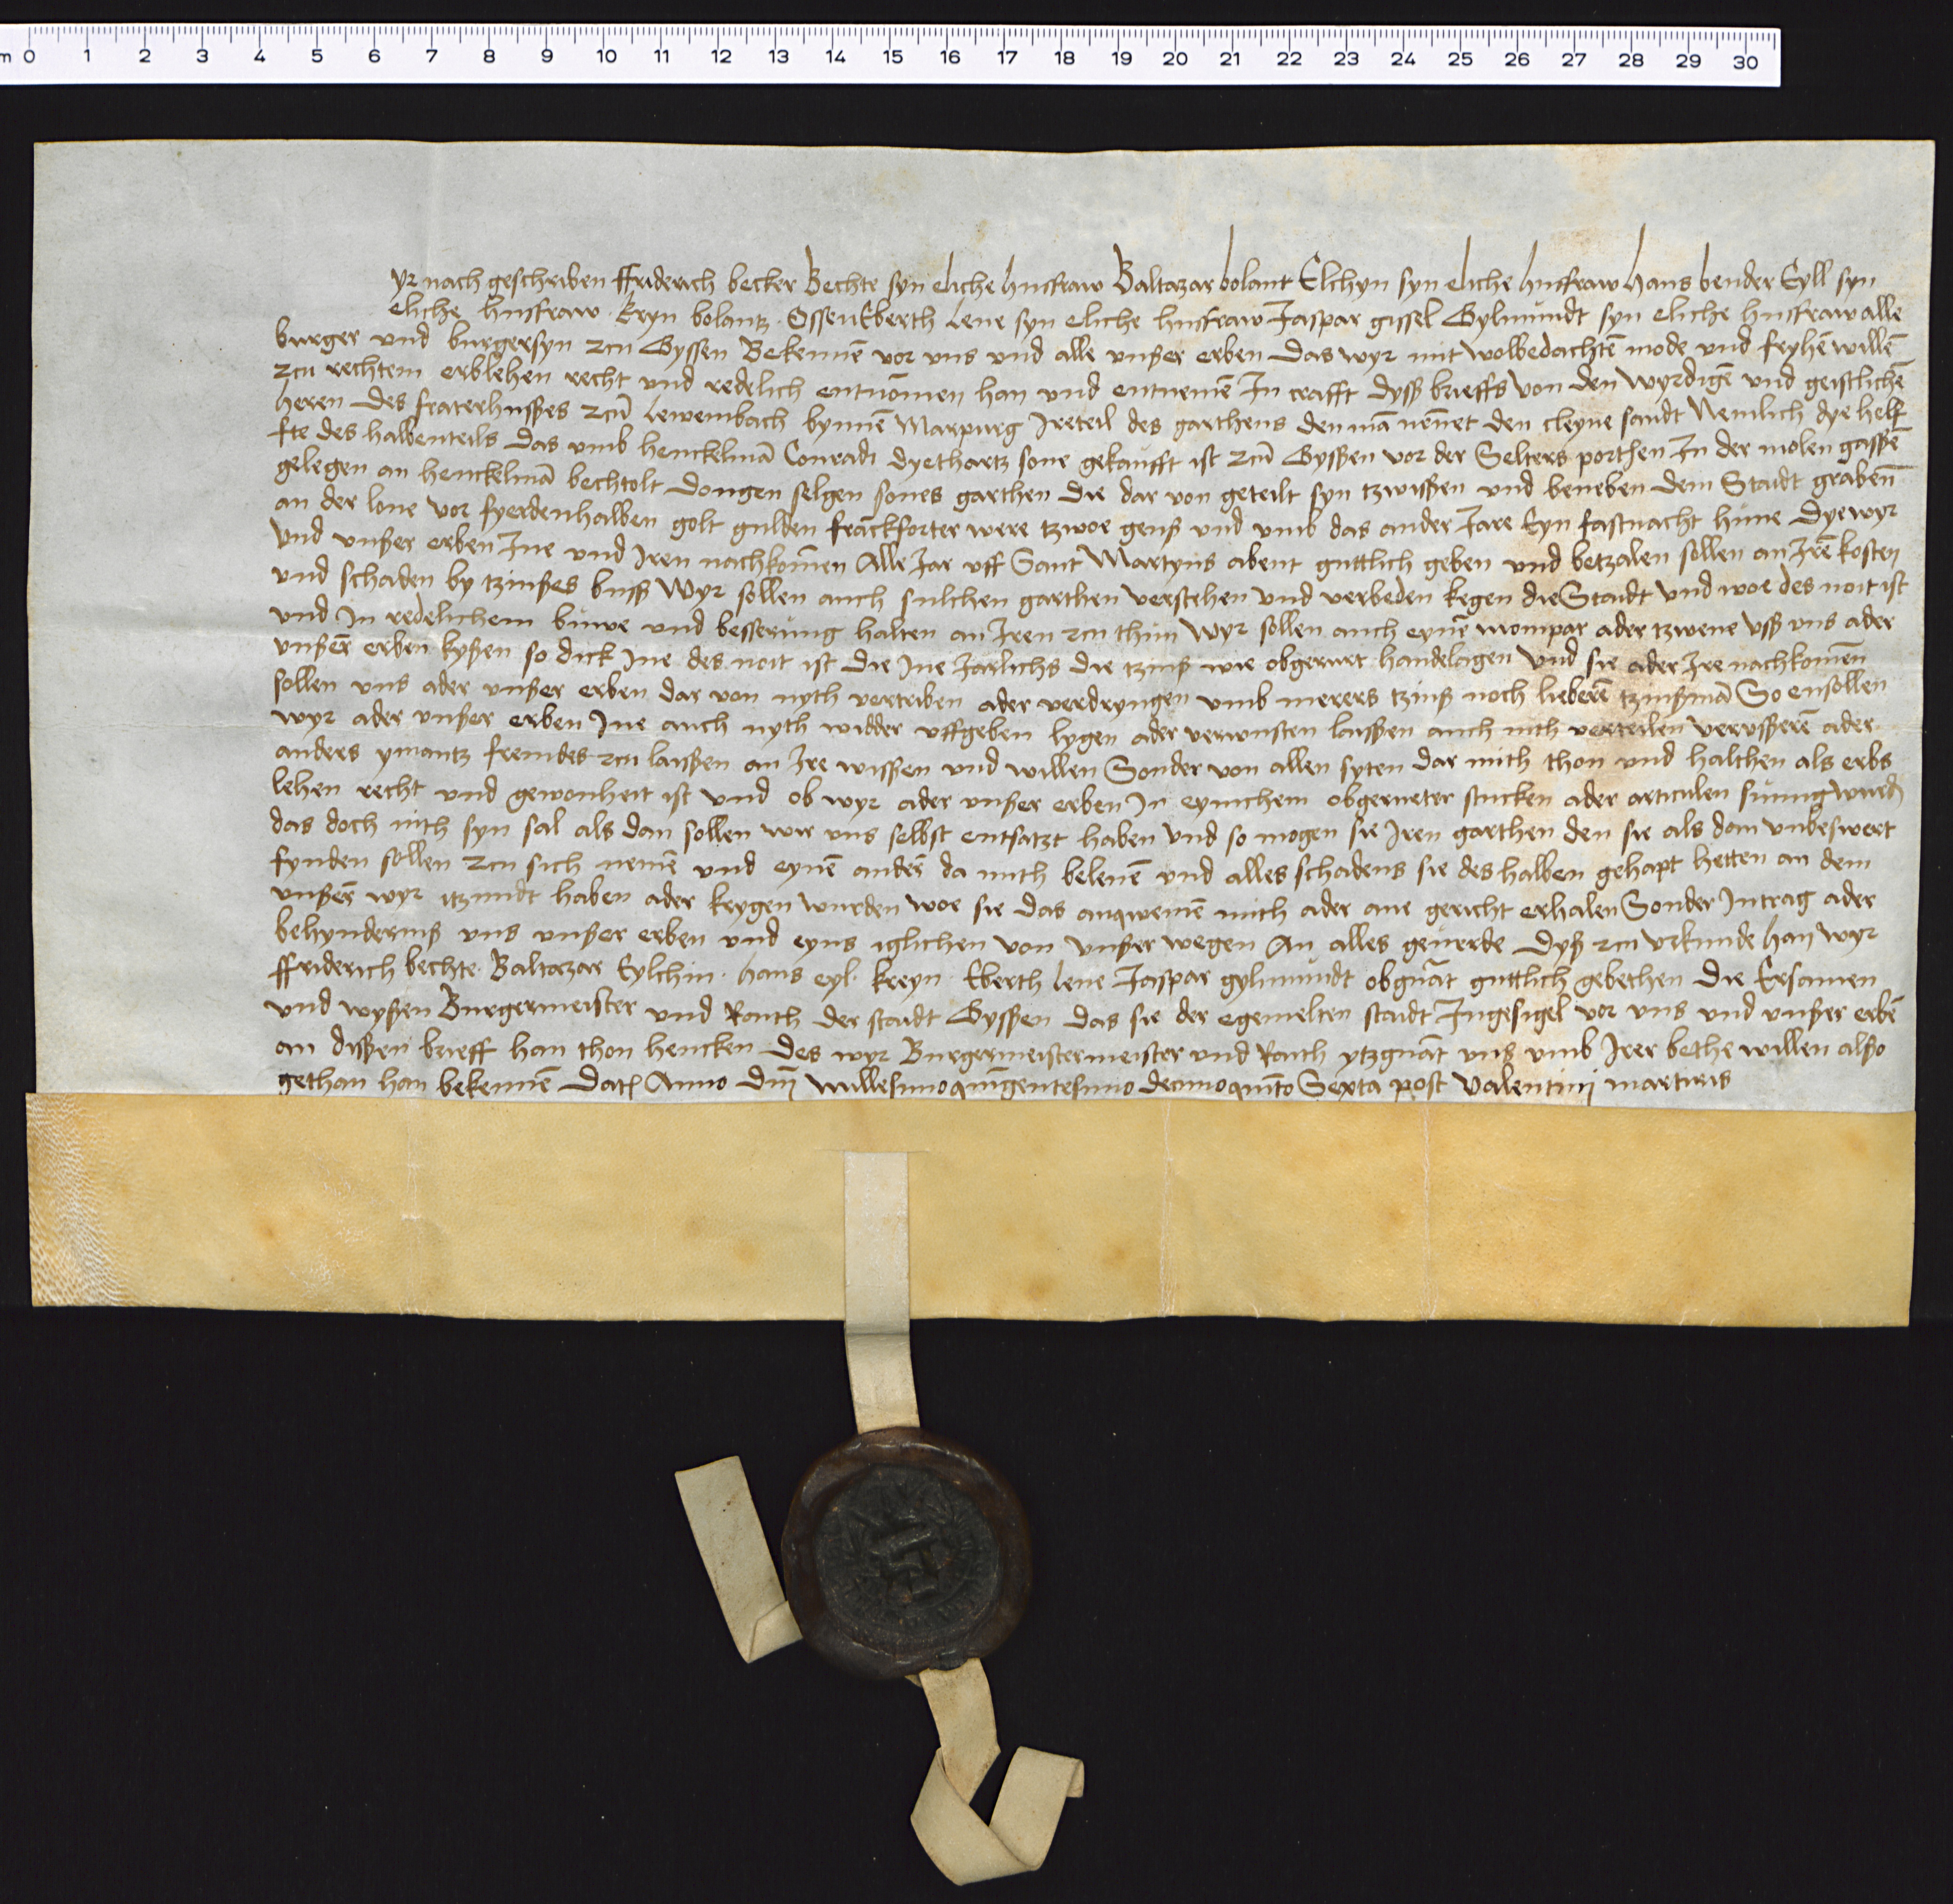 m 0 1 2 3 4 5 6 7 8 9 10 11 12 13 14 15 16 17 18 19 20 21 22 23 24 25 26 27 28 29 30
yr nach geschriben ffriderich becker Bechte syn eliche husfraw Baltazar bolant Elchyn syn eliche husfraw hans bender Eyll syn
eliche husfraw . kryn bolantz . Ossen Eberth lene syn eliche husfraw Jaspar gissel Gylmundt syn eliche husfraw alle
burger und burgersyn zcu Gyssen Bekennē vor uns und alle unßer erben das wyr mit wolbedachtē mode und fryhē willē
zcu rechtem erblehen recht und redelich entnōmen han und entnemē In crafft dyß brieffs von den wyrdigē und geistlichē
heren des fraterhußes zcū lewembach bynnē Marpurg Ireteil des garthens den mā nēnet den cleyne sandt Nemlich dye helf
fte des halbenteils das umb henckelmā Conradi dyethartz sone gekaufft ist zcū Gyßen vor der Selters porthen In der molen gaßē
gelegen an henckelmā bechtolt dongen selgen sones garthen die dar von geteilt syn tzwißen und beneben dem Stadt grabenn
an der lone vor fyerdenhalben golt gulden franckforter were tzwoe gens und umb das ander Jare Eyn fastnacht hūne dye wyr
und unßer erben Ine und Iren nachkōmen Alle Jar uff Sant Martyns abent guttlich geben und betzalen sollen an Irē kosten
und schaden by tzinßes buß Wyr sollen auch sulchen garthen verstehen und verbeden kegen die Stadt und woe des noit ist
und In redelichem buwe und besserung halten an Iren zcu thun Wyr sollen auch eynē mompar ader tzwene uß uns ader
unßerē erben kyßen so dick Ine des noit ist die Ine Jarlichs die tzinß wie obgerurt handelagen und sie ader Ire nachkomen
sollen uns ader unßer erben dar von nyth vertriben ader verdryngen umb merers tzinß noch lieberē tzinßmā So ensollen
wyr ader unßer erben Ine auch nyth widder uffgeben lygen ader verwusten laißen auch nith verteilen verußerē ader
anders ymantz fremdes zcu laißen an Ire wißen und willen Sonder von allen syten dar mith thon und halthen als erbs
lehen recht und gewonheit ist und ob wyr ader unßer erben In eynichem obgerurter stucken ader articulen sumig wurdē
das doch nith syn sal als dan sollen wir uns selbst entsatzt haben und so mogen sie Iren garthen den sie als dan unbeswert
fynden sollen zcu sich nemē und eynē anderē da mith belenē und alles schadens sie des halben gehapt hetten an dem
unßerē wyr itzundt haben ader krygen wurden woe sie das anqwemē mith ader ane gericht erhalen Sonder Intrag ader
behyndernis uns unßer erben und eyns iglichen von unßer wegen An alles geuerde dyß zcu urkunde han wyr
ffriderich bechte . Baltazar Eylchin . hans eyl . kreyn . Eberth lene Jaspar gylmundt obgnāt guttlich gebethen die Ersamen
und wyßen Burgermeister und Rauth der stadt Gyßen das sie der egemelten stadt Ingesigel vor uns und unßer erbē
an dißen brieff han thon hencken des wyr Burgermeistermeister und Rauth ytzgnāt uns umb Irer bethe willen also
gethan han bekennē Datz Anno dnī millesimo quīngentesimo decimo quīto Sexta post valentinij martiris